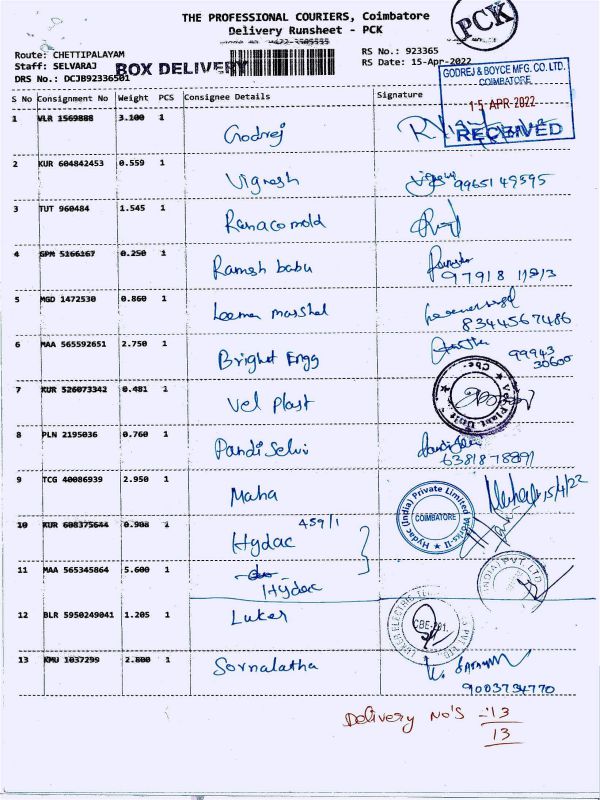 THE PROFESSIONAL COURIERS, Coimbatore
Delivery Runsheet - PCK
PCK
Route: CHETTIPALAYAM
Staff: SELVARAJ
DRS No.: DCJB92336501
BOX DELIVERY
RS No.: 923365
RS Date: 15-Apr-2022
GODREJ & BOYCE MFG. CO. LTD.
COIMBATORE
15 APR 2022
RECEIVED
S No Consignment No Weight PCS Consignee Details Signature
1 VLR 1569888 3.100 1 Godrej
2 KUR 604842453 0.559 1 Vignesh 9965149595
3 TUT 960484 1.545 1 Ranacomold
4 GPM 5166167 0.250 1 Ramesh babu
5 MGD 1472530 0.860 1 Leeman marshal 8344567486
6 MAA 565592651 2.750 1 Bright Engg 99943
30600
7 KUR 526073342 0.481 1 Vel plast
8 PLN 2195036 0.760 1 Pandi Selvi
9 TCG 40086939 2.950 1 Maha 15/4/22
Hydac (India) Private Limited Works-II
COIMBATORE
10 KUR 608375644 0.908 1 Hydac 459/1
11 MAA 565345864 5.600 1 Hydac
12 BLR 5950249041 1.205 1 Luker
13 KMU 1037299 2.800 1 Sornalatha
9003734770
Delivery No's - 13
13